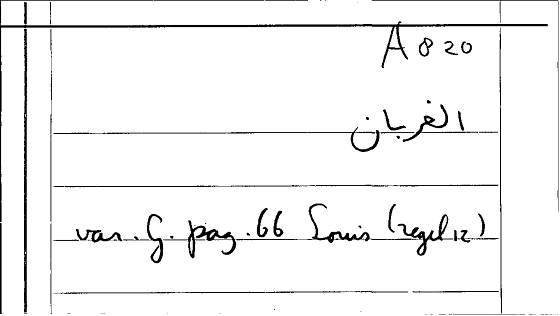 A 820
الغربان
var. G. pag. 66 Louis (regel 12)